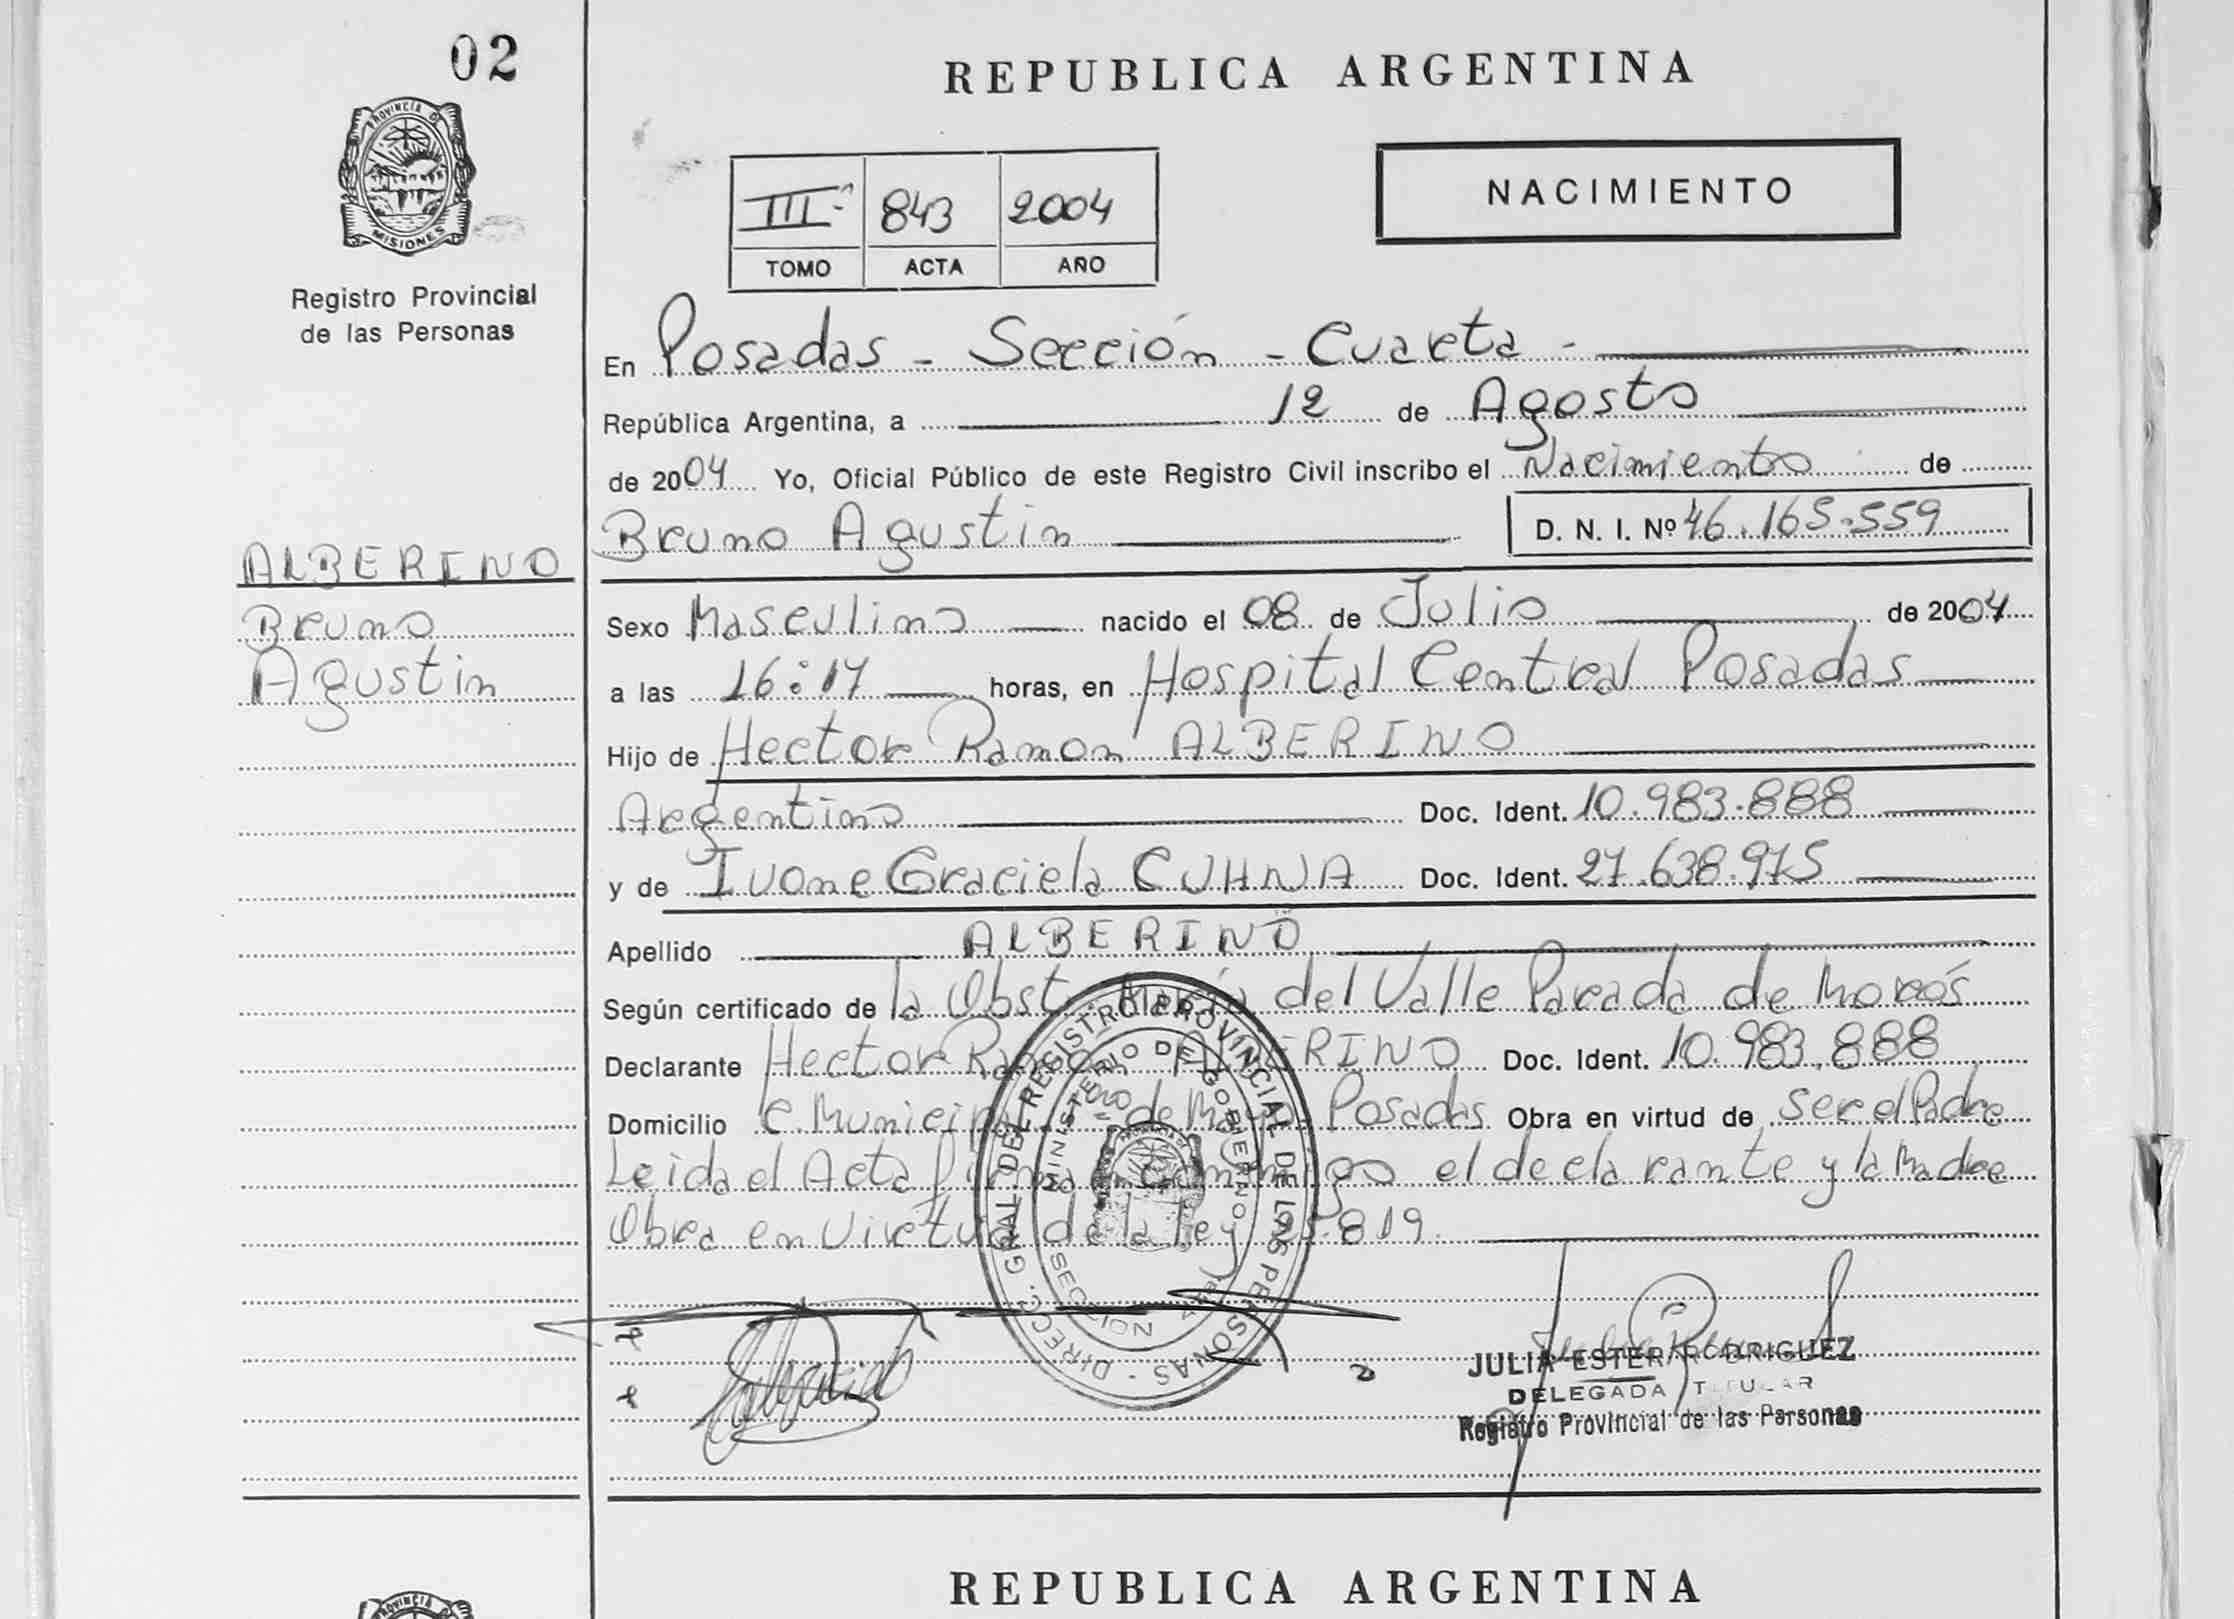 02
PROVINCIA DE
MISIONES
Registro Provincial
de las Personas
ALBERINO
Bruno
Agustin
REPUBLICA ARGENTINA
III 843 2004
TOMO ACTA AÑO
NACIMIENTO
En Posadas - Sección - Cuarta -
República Argentina, a 12 de Agosto
de 2004 Yo, Oficial Público de este Registro Civil inscribo el Nacimiento de
Bruno Agustin D. N. I. Nº 46.165.559
Sexo Masculino nacido el 08 de Julio de 2004
a las 16:17 horas, en Hospital Central Posadas
Hijo de Hector Ramon ALBERINO
Argentino Doc. Ident. 10.983.888
y de Ivone Graciela CUHNA Doc. Ident. 27.638.975
Apellido ALBERINO
Según certificado de la Obst. María del Valle Parada de
Declarante Hector Ramon ALBERINO Doc. Ident. 10.983.888
Domicilio C. Municipal de Posadas Obra en virtud de Ser el Padre
Leida el Acta firma conmigo el declarante y la Madre
Obra en Virtud de la ley 25.819.
DIRECC. GRAL. DEL REGISTRO PROVINCIAL DE LAS PERSONAS
MINISTERIO DE GOBIERNO
SECCION
JULIA ESTER RODRIGUEZ
DELEGADA TITULAR
Registro Provincial de las Personas
REPUBLICA ARGENTINA
PROVINCIA